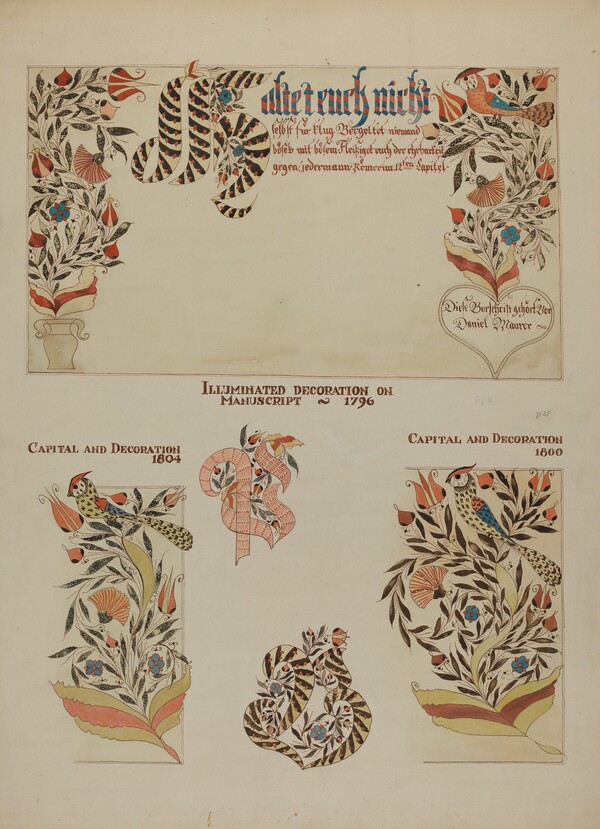 Haltet euch nicht
selbst für klug Vergeltet niemand
böses mit bösem Fleisiget euch der ehrbarkeit
gegen jedermann Römer im 12ten Capitel
Diese Vorschrift gehört Vor
Daniel Maurer ~
ILLUMINATED DECORATION ON
MANUSCRIPT ~ 1796
CAPITAL AND DECORATION
1804
CAPITAL AND DECORATION
1800